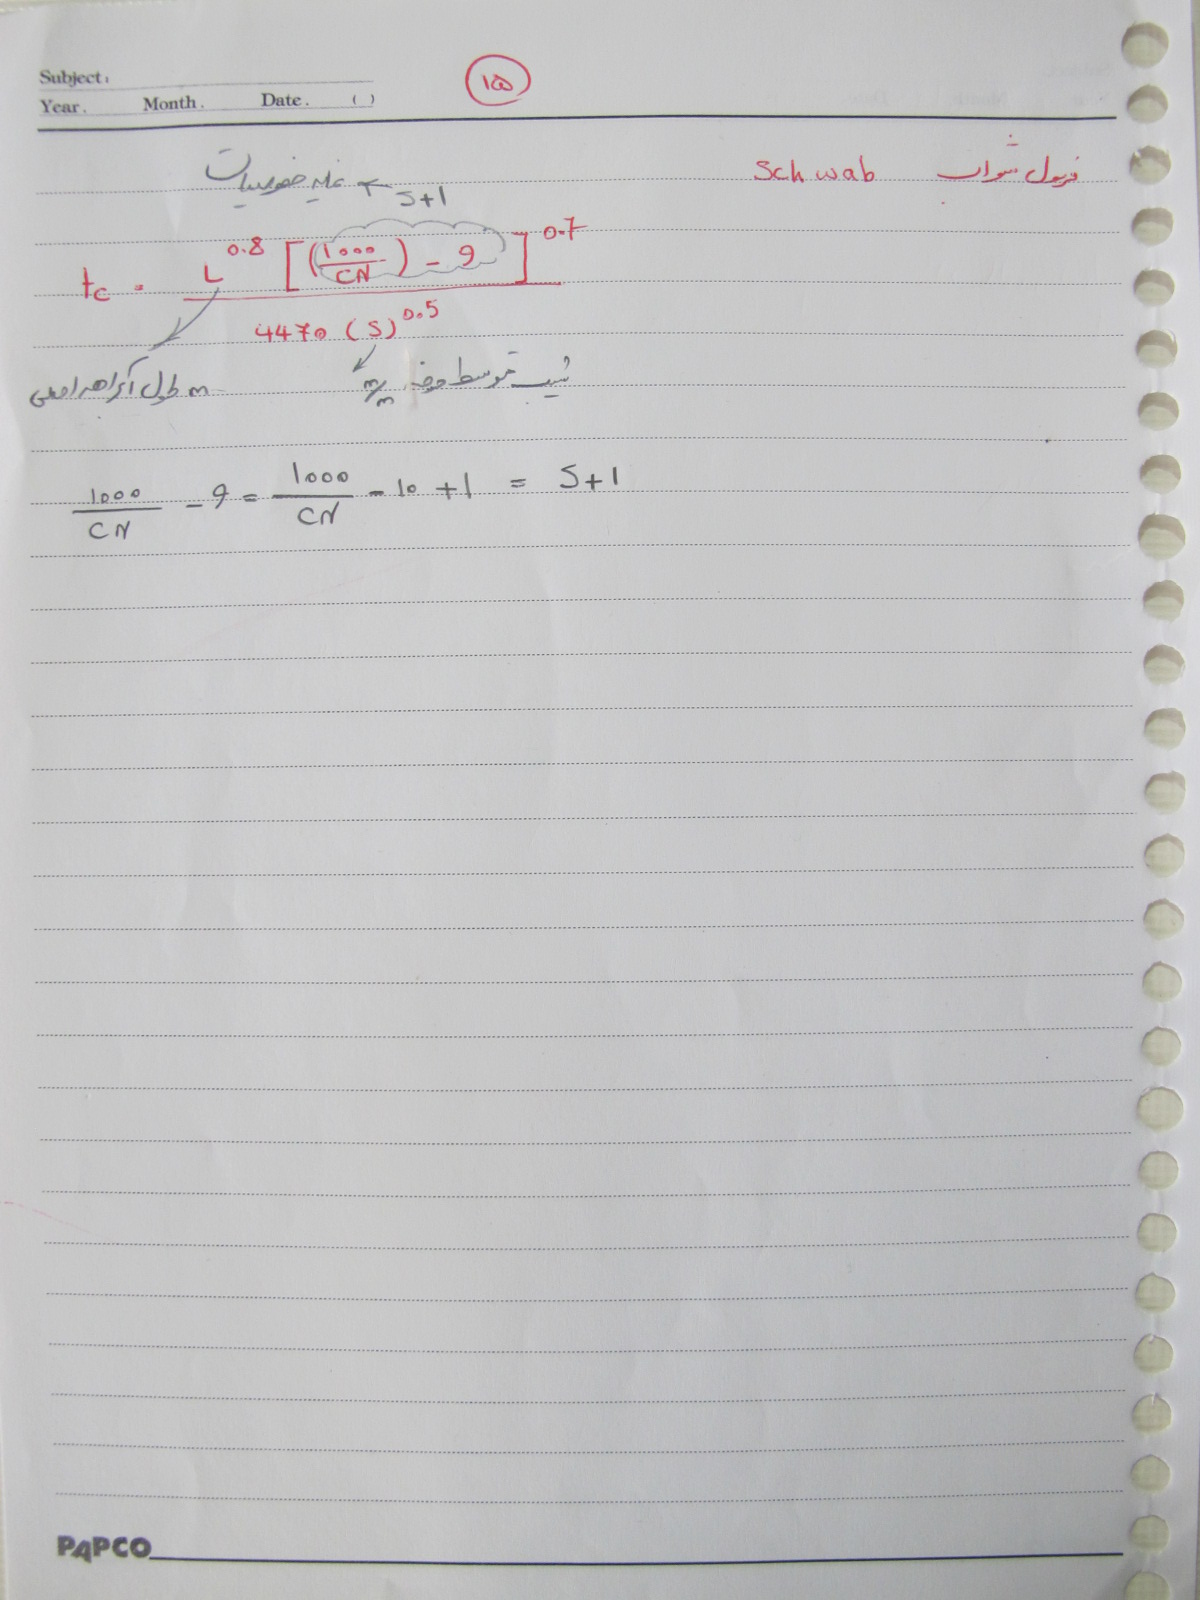 Subject:
Year. Month. Date. ( )
۱۵
فرمول شواب Schwab
S+1 ← خصوصیات
tc = L^0.8 [(1000/CN) - 9]^0.7 / 4470 (S)^0.5
m طول آبراهه اصلی
شیب متوسط حوضه m/m
1000/CN - 9 = 1000/CN - 10 + 1 = S+1
PAPCO